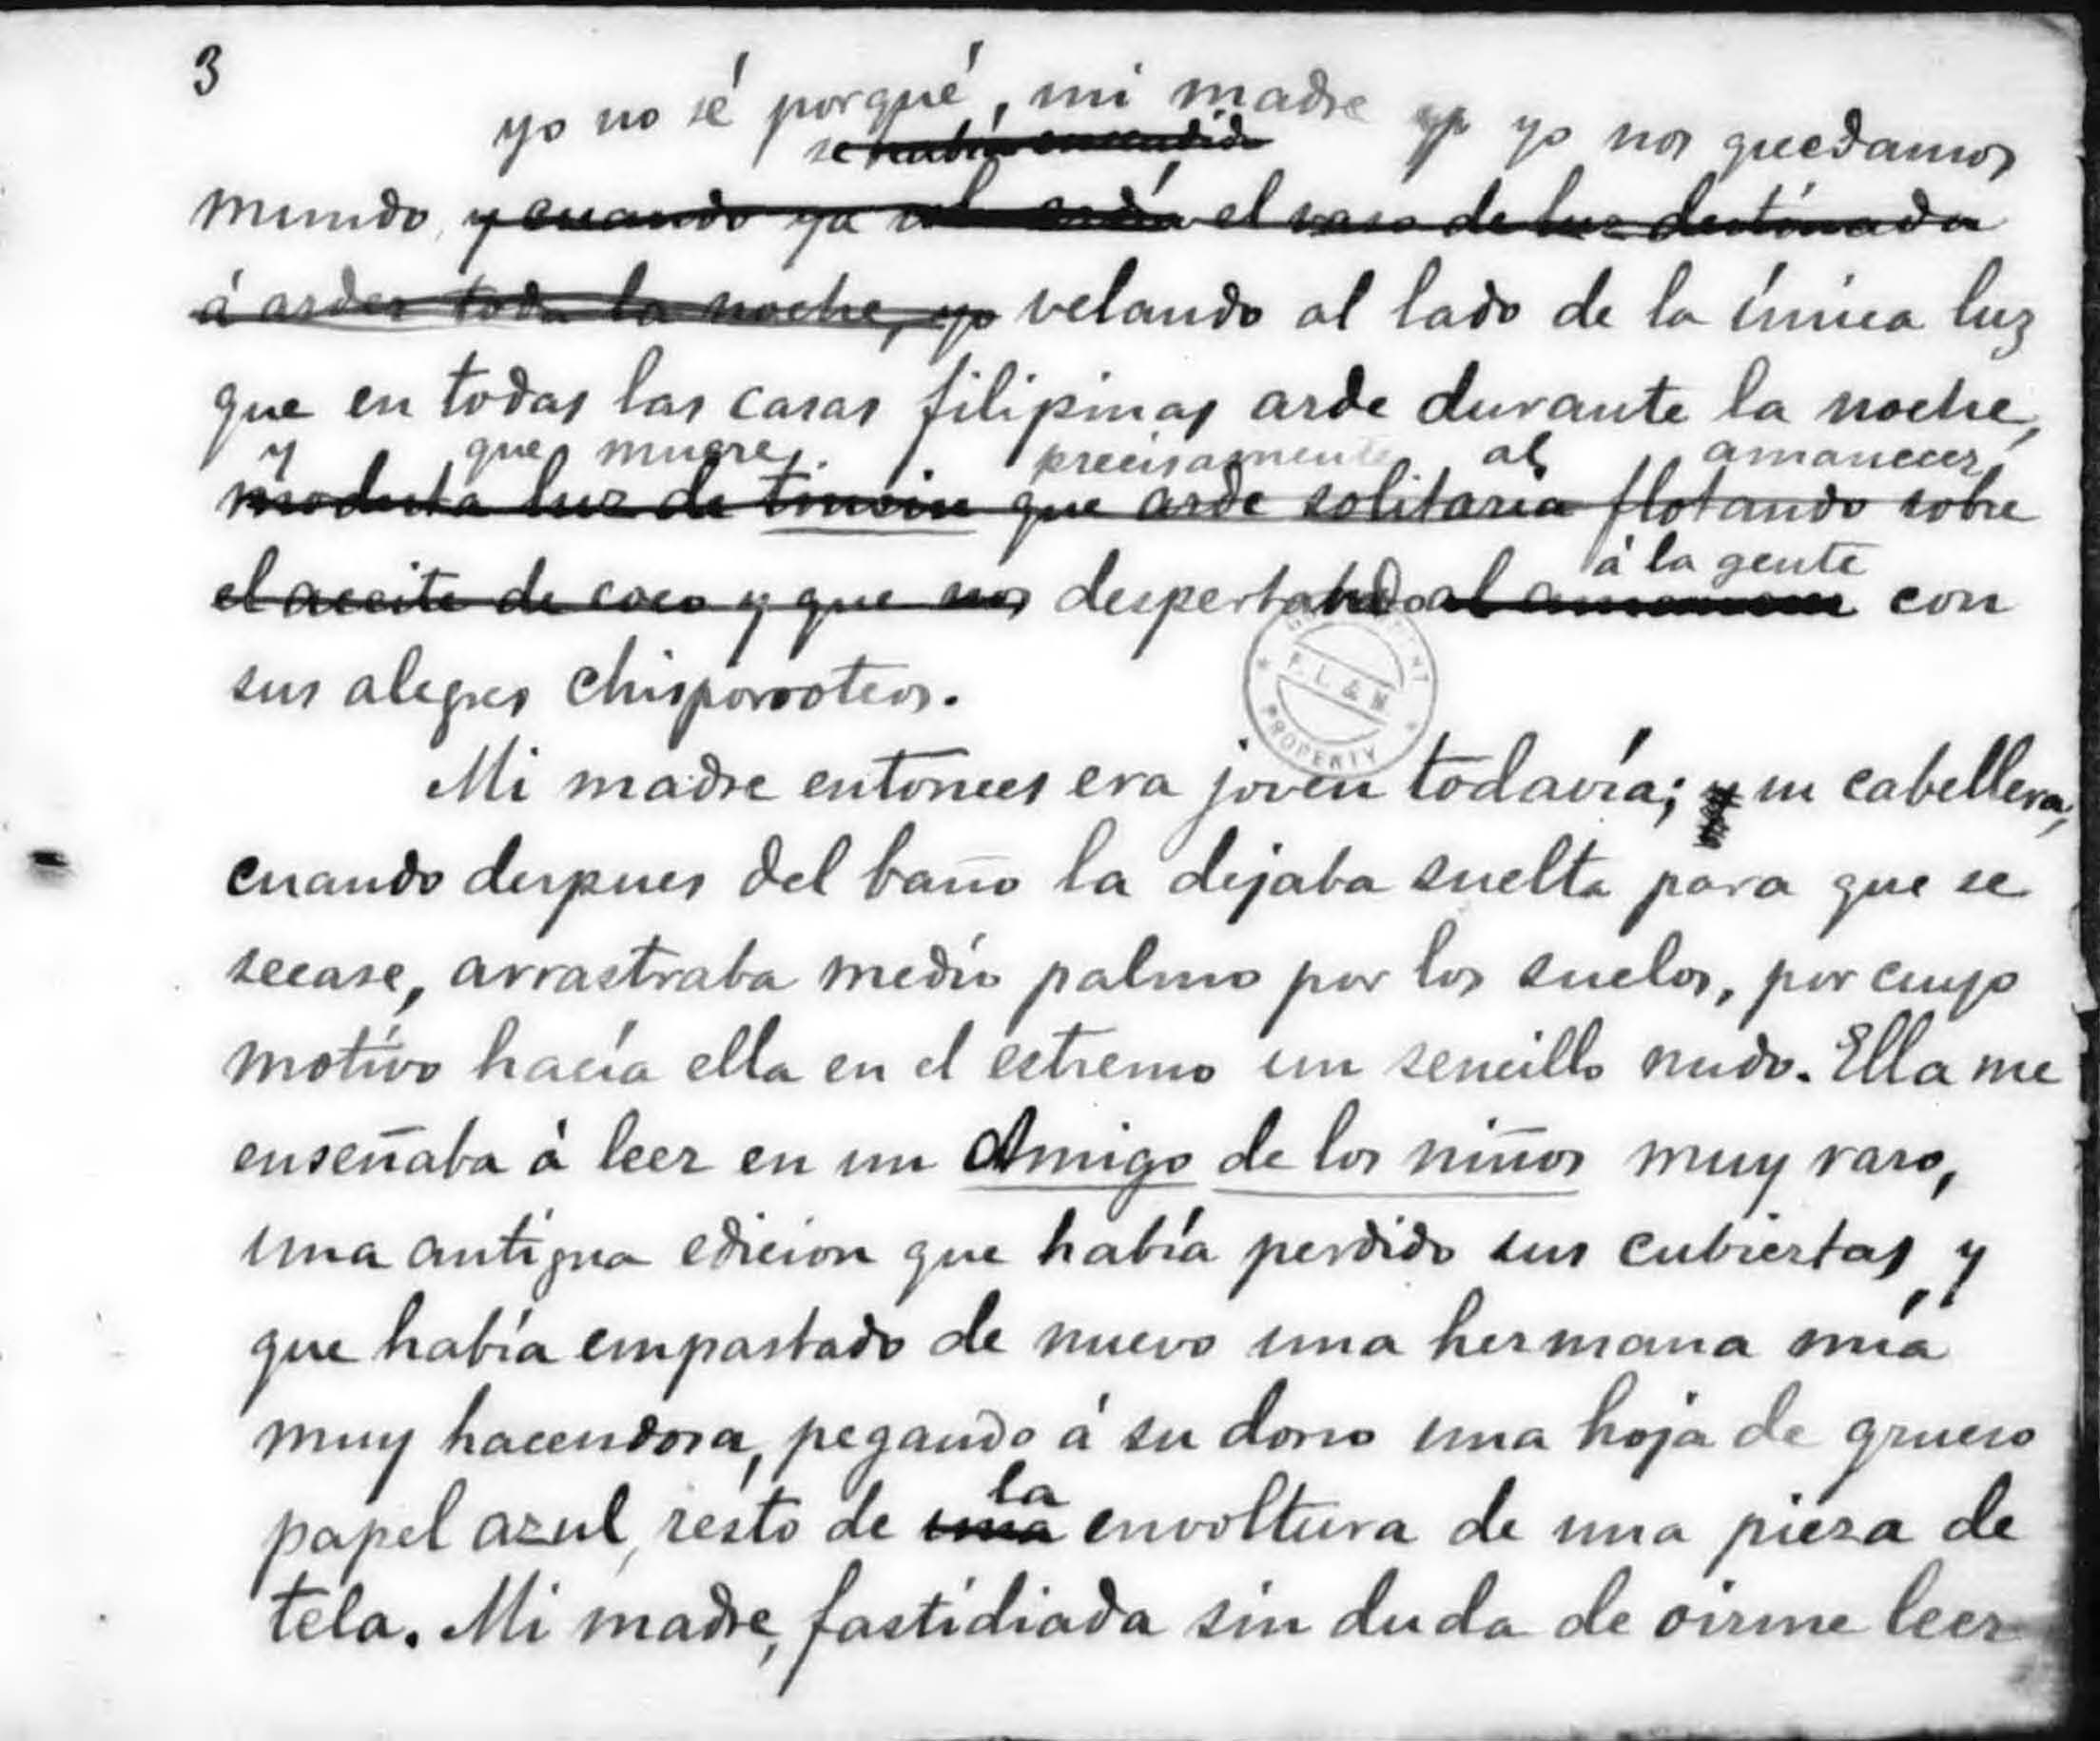 3
yo no sé porqué, mi madre y yo nos quedamos
se había encendido
mundo, y cuando ya solo ardía el vaso de luz destinada
á arder toda la noche, yo velando al lado de la única luz
que en todas las casas filipinas arde durante la noche,
y que muere precisamente al amanecer
modesta luz de tinsin que arde solitaria flotando sobre
á la gente
el aceite de coco y que nos despertando al amanecer con
sus alegres chisporroteos.
GOVERNMENT
P.L. & M.
PROPERTY
Mi madre entonces era joven todavía; y su cabellera,
cuando despues del baño la dejaba suelta para que se
secase, arrastraba medio palmo por los suelos, por cuyo
motivo hacía ella en el estremo un sencillo nudo. Ella me
enseñaba á leer en un Amigo de los niños muy raro,
una antigua edicion que había perdido sus cubiertas, y
que había empastado de nuevo una hermana mía
muy hacendosa, pegando á su dorso una hoja de grueso
la
papel azul, resto de una envoltura de una pieza de
tela. Mi madre, fastidiada sin duda de oirme leer